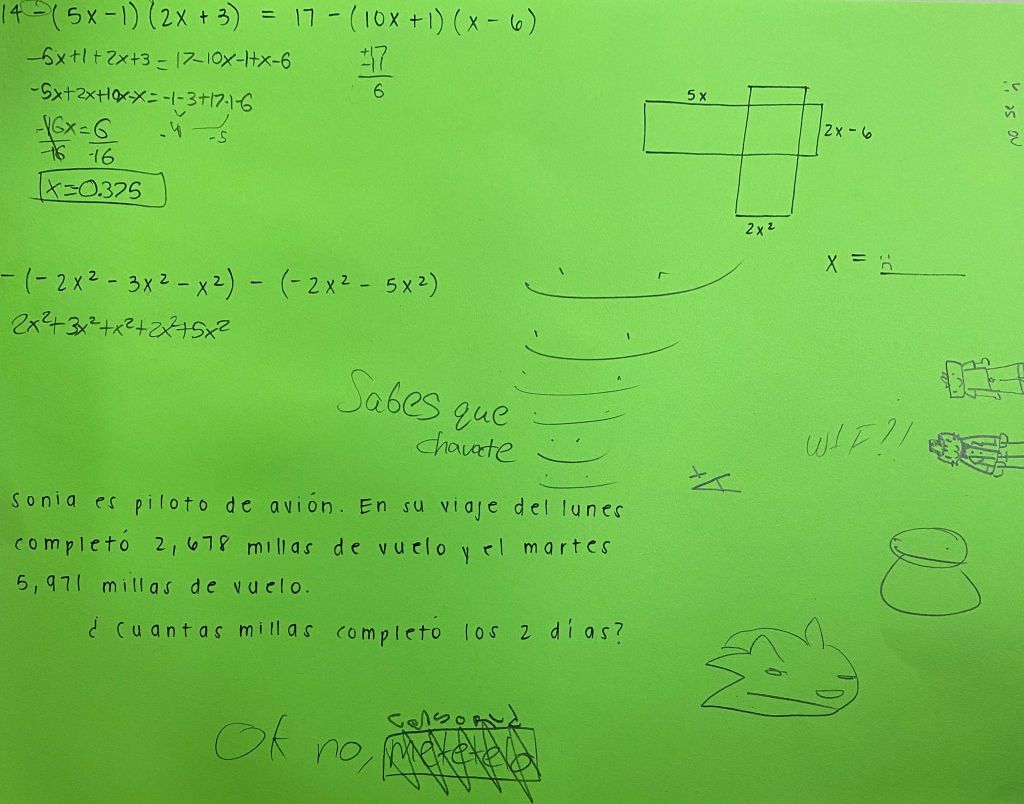 14 - (5x-1)(2x+3) = 17 - (10x+1)(x-6)
-5x+1+2x+3=17-10x-1+x-6
-5x+2x+10x-x=-1-3+17-1-6
-4 -5
-16x=6
-16 -16
x=0.375
+17
-17
6
5x
2x-6
2x²
x =
-(-2x²-3x²-x²)-(-2x²-5x²)
2x²+3x²+x²+2x²+5x²
Sabes que
chavote
WTF?!
sonia es piloto de avión. En su viaje del lunes
completó 2,678 millas de vuelo y el martes
5,971 millas de vuelo.
¿cuantas millas completó los 2 días?
Ok no, metetelo